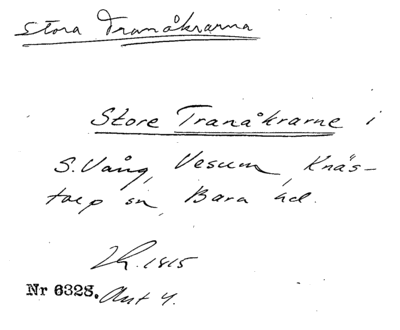 Stora Tranåkrarna
Store Tranåkrarne i
S. Vång, Vesum, Knäs-
torp sn, Bara hd.
1815
Nr 6328. Akt 4.